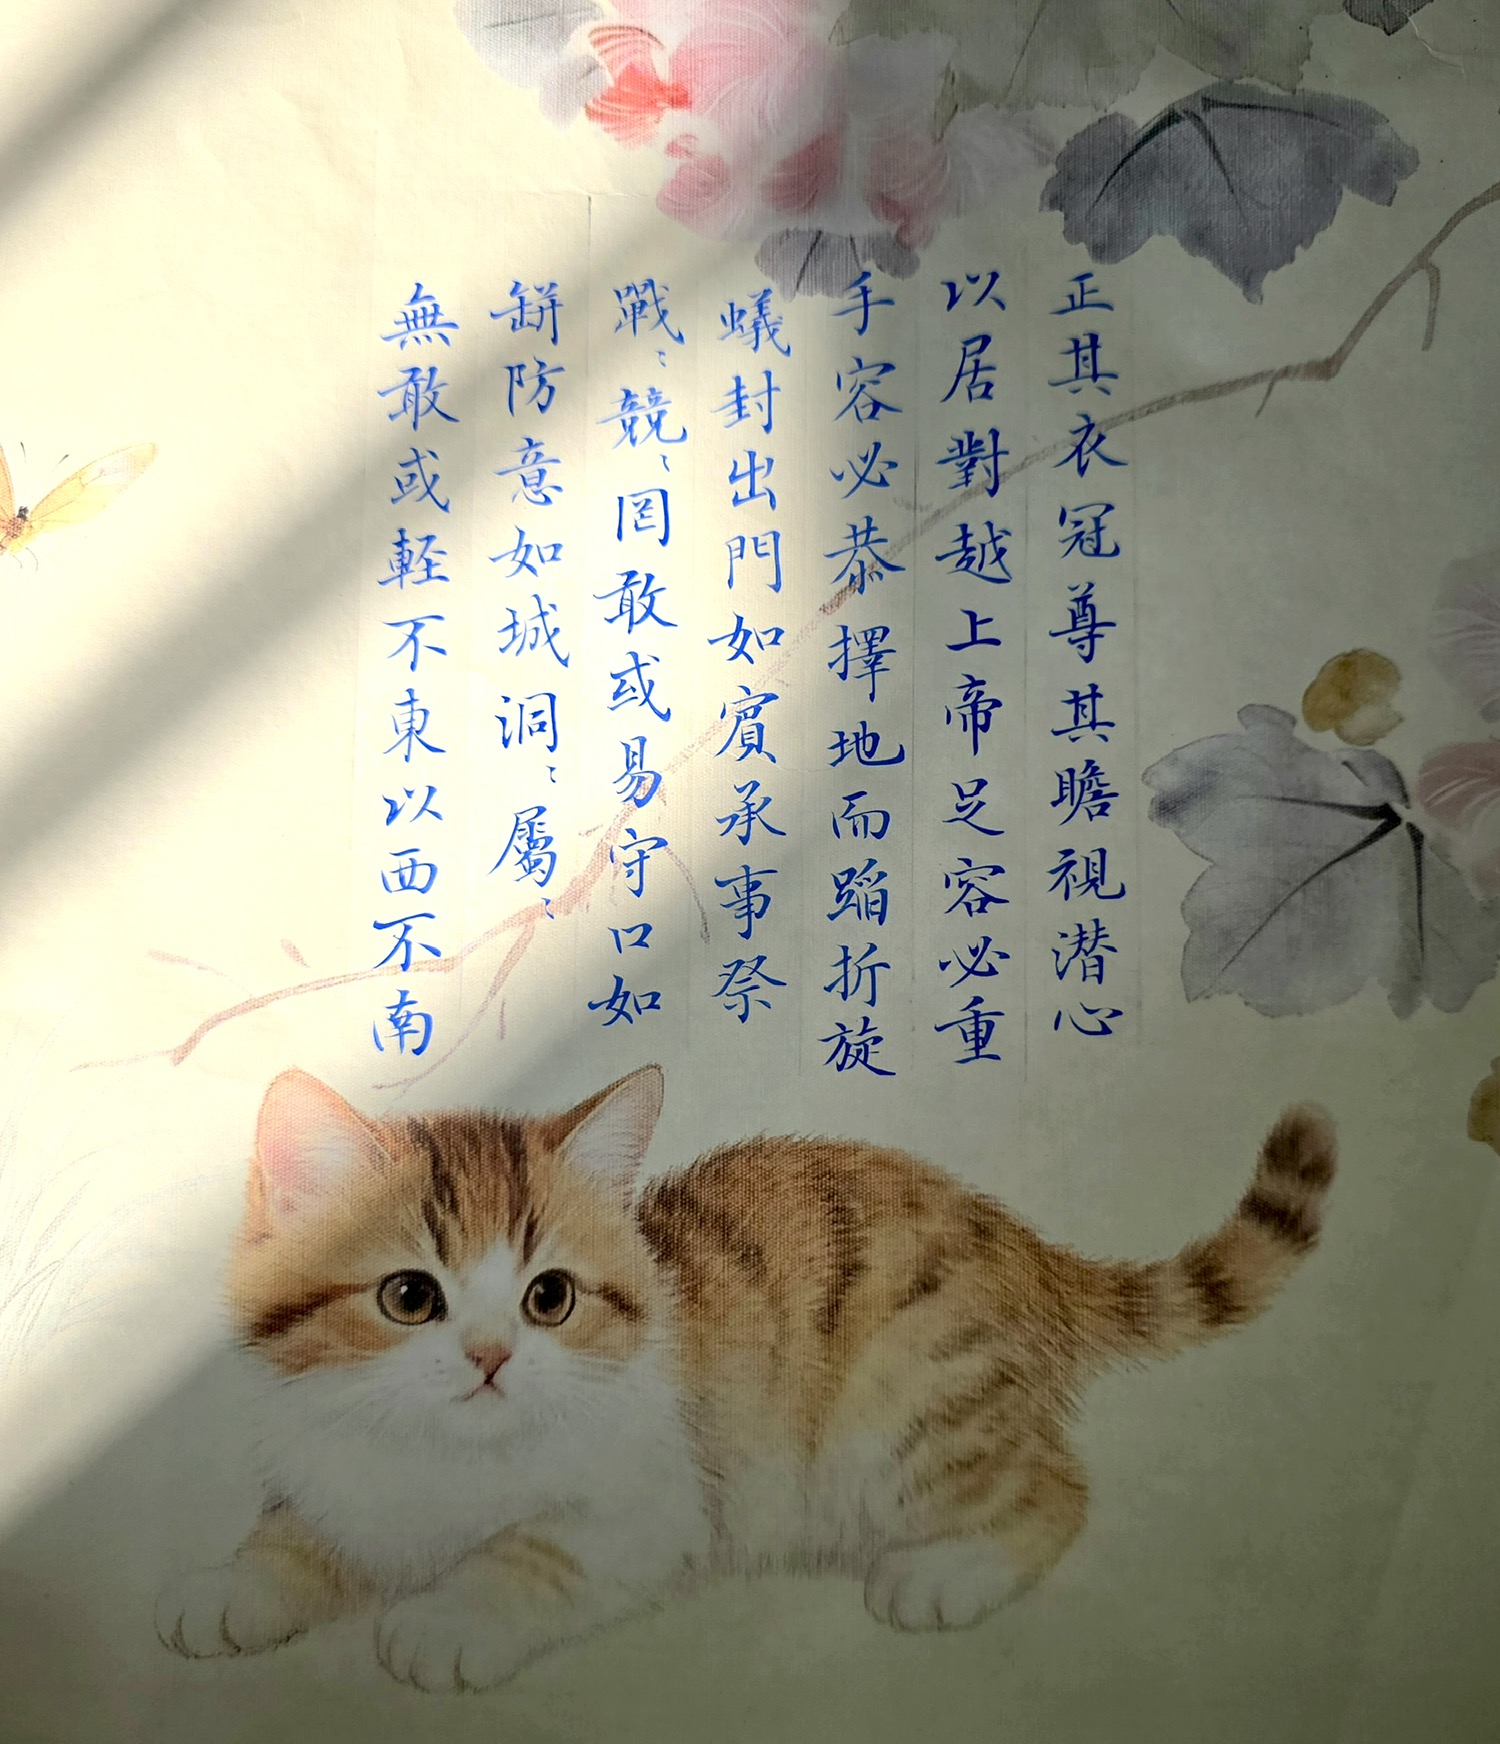 正其衣冠尊其瞻視潜心
以居對越上帝足容必重
手容必恭擇地而蹈折旋
蟻封出門如賓承事祭
戰〻競〻罔敢或易守口如
缾防意如城洞〻屬〻
無敢或軽不東以西不南